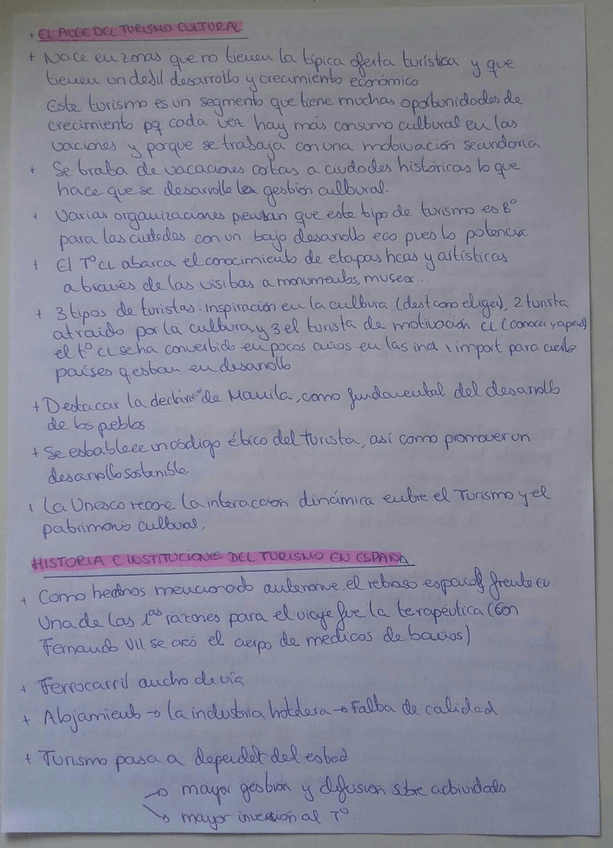 + EL AUGE DEL TURISMO CULTURAL
+ Nace en zonas que no tienen la típica oferta turística y que
tienen un débil desarrollo y crecimiento económico.
Este turismo es un segmento que tiene muchas oportunidades de
crecimiento pq cada vez hay más consumo cultural en las
vaciones y porque se trabaja con una motivación secundaria
+ Se trata de vacaciones cortas a ciudades históricas lo que
hace que se desarrolle la gestión cultural.
+ Varias organizaciones piensan que este tipo de turismo es B°
para las ciudades con un bajo desarrollo eco pues lo potencia.
+ El T° CL abarca el conocimiento de etapas hcas y artísticas
a través de las visitas a monumentos, museos...
+ 3 tipos de turistas. Inspiración en la cultura (dest como eligen), 2 turista
atraido por la cultura y 3 el turista de motivación CL (conocer y
el t° CL se ha convertido en pocos años en las ind import para
países q estan en desarrollo
+ Destacar la de Manila, como fundamental del desarrollo
de los pueblos
+ Se establece un código ético del turista, así como promover un
desarrollo sostenible.
+ La Unesco la interacción dinámica entre el Turismo y el
patrimonio cultural.
HISTORIA E INSTITUCIONES DEL TURISMO EN ESPAÑA
+ Como hemos mencionado el retraso español frente
Una de las 1as razones para el viaje fue la terapéutica (con
Fernando VII se creó el cuerpo de medicos de baños)
+ Ferrocarril ancho de vía
+ Alojamiento → la industria hotelera → Falta de calidad
+ Turismo pasa a depender del estado
→ mayor gestion y difusion sobre actividades
↘ mayor inversión al T°